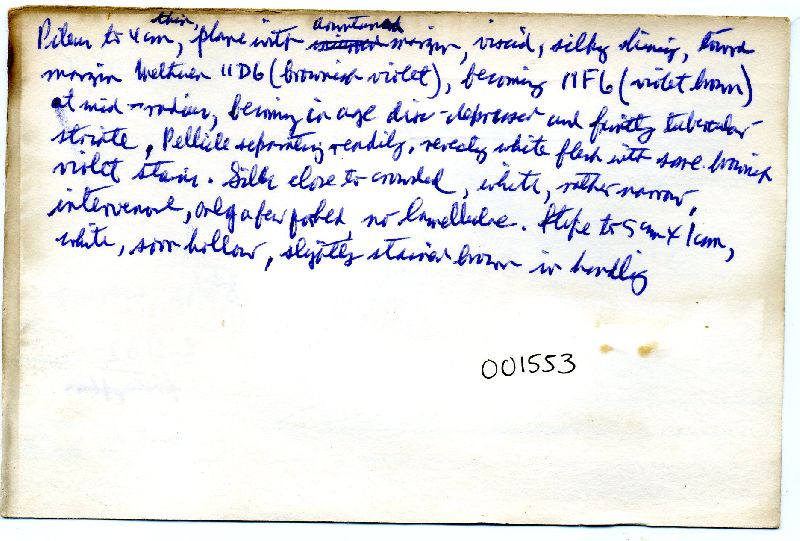 Pileus to 4 cm, thin, plane with downturned margin, viscid, silky shining, toward
margin Methuen 11D6 (brownish violet), becoming 11F6 (violet brown)
at mid-radius, becoming in age disc-depressed and faintly tubercular-
striate, Pellicle separating readily, revealing white flesh with some brownish
violet stains. Gills close to crowded, white, rather narrow,
intervenose, only a few forked, no lamellulae. Stipe to 5 cm x 1 cm,
white, soon hollow, slightly stained brown in handling
001553